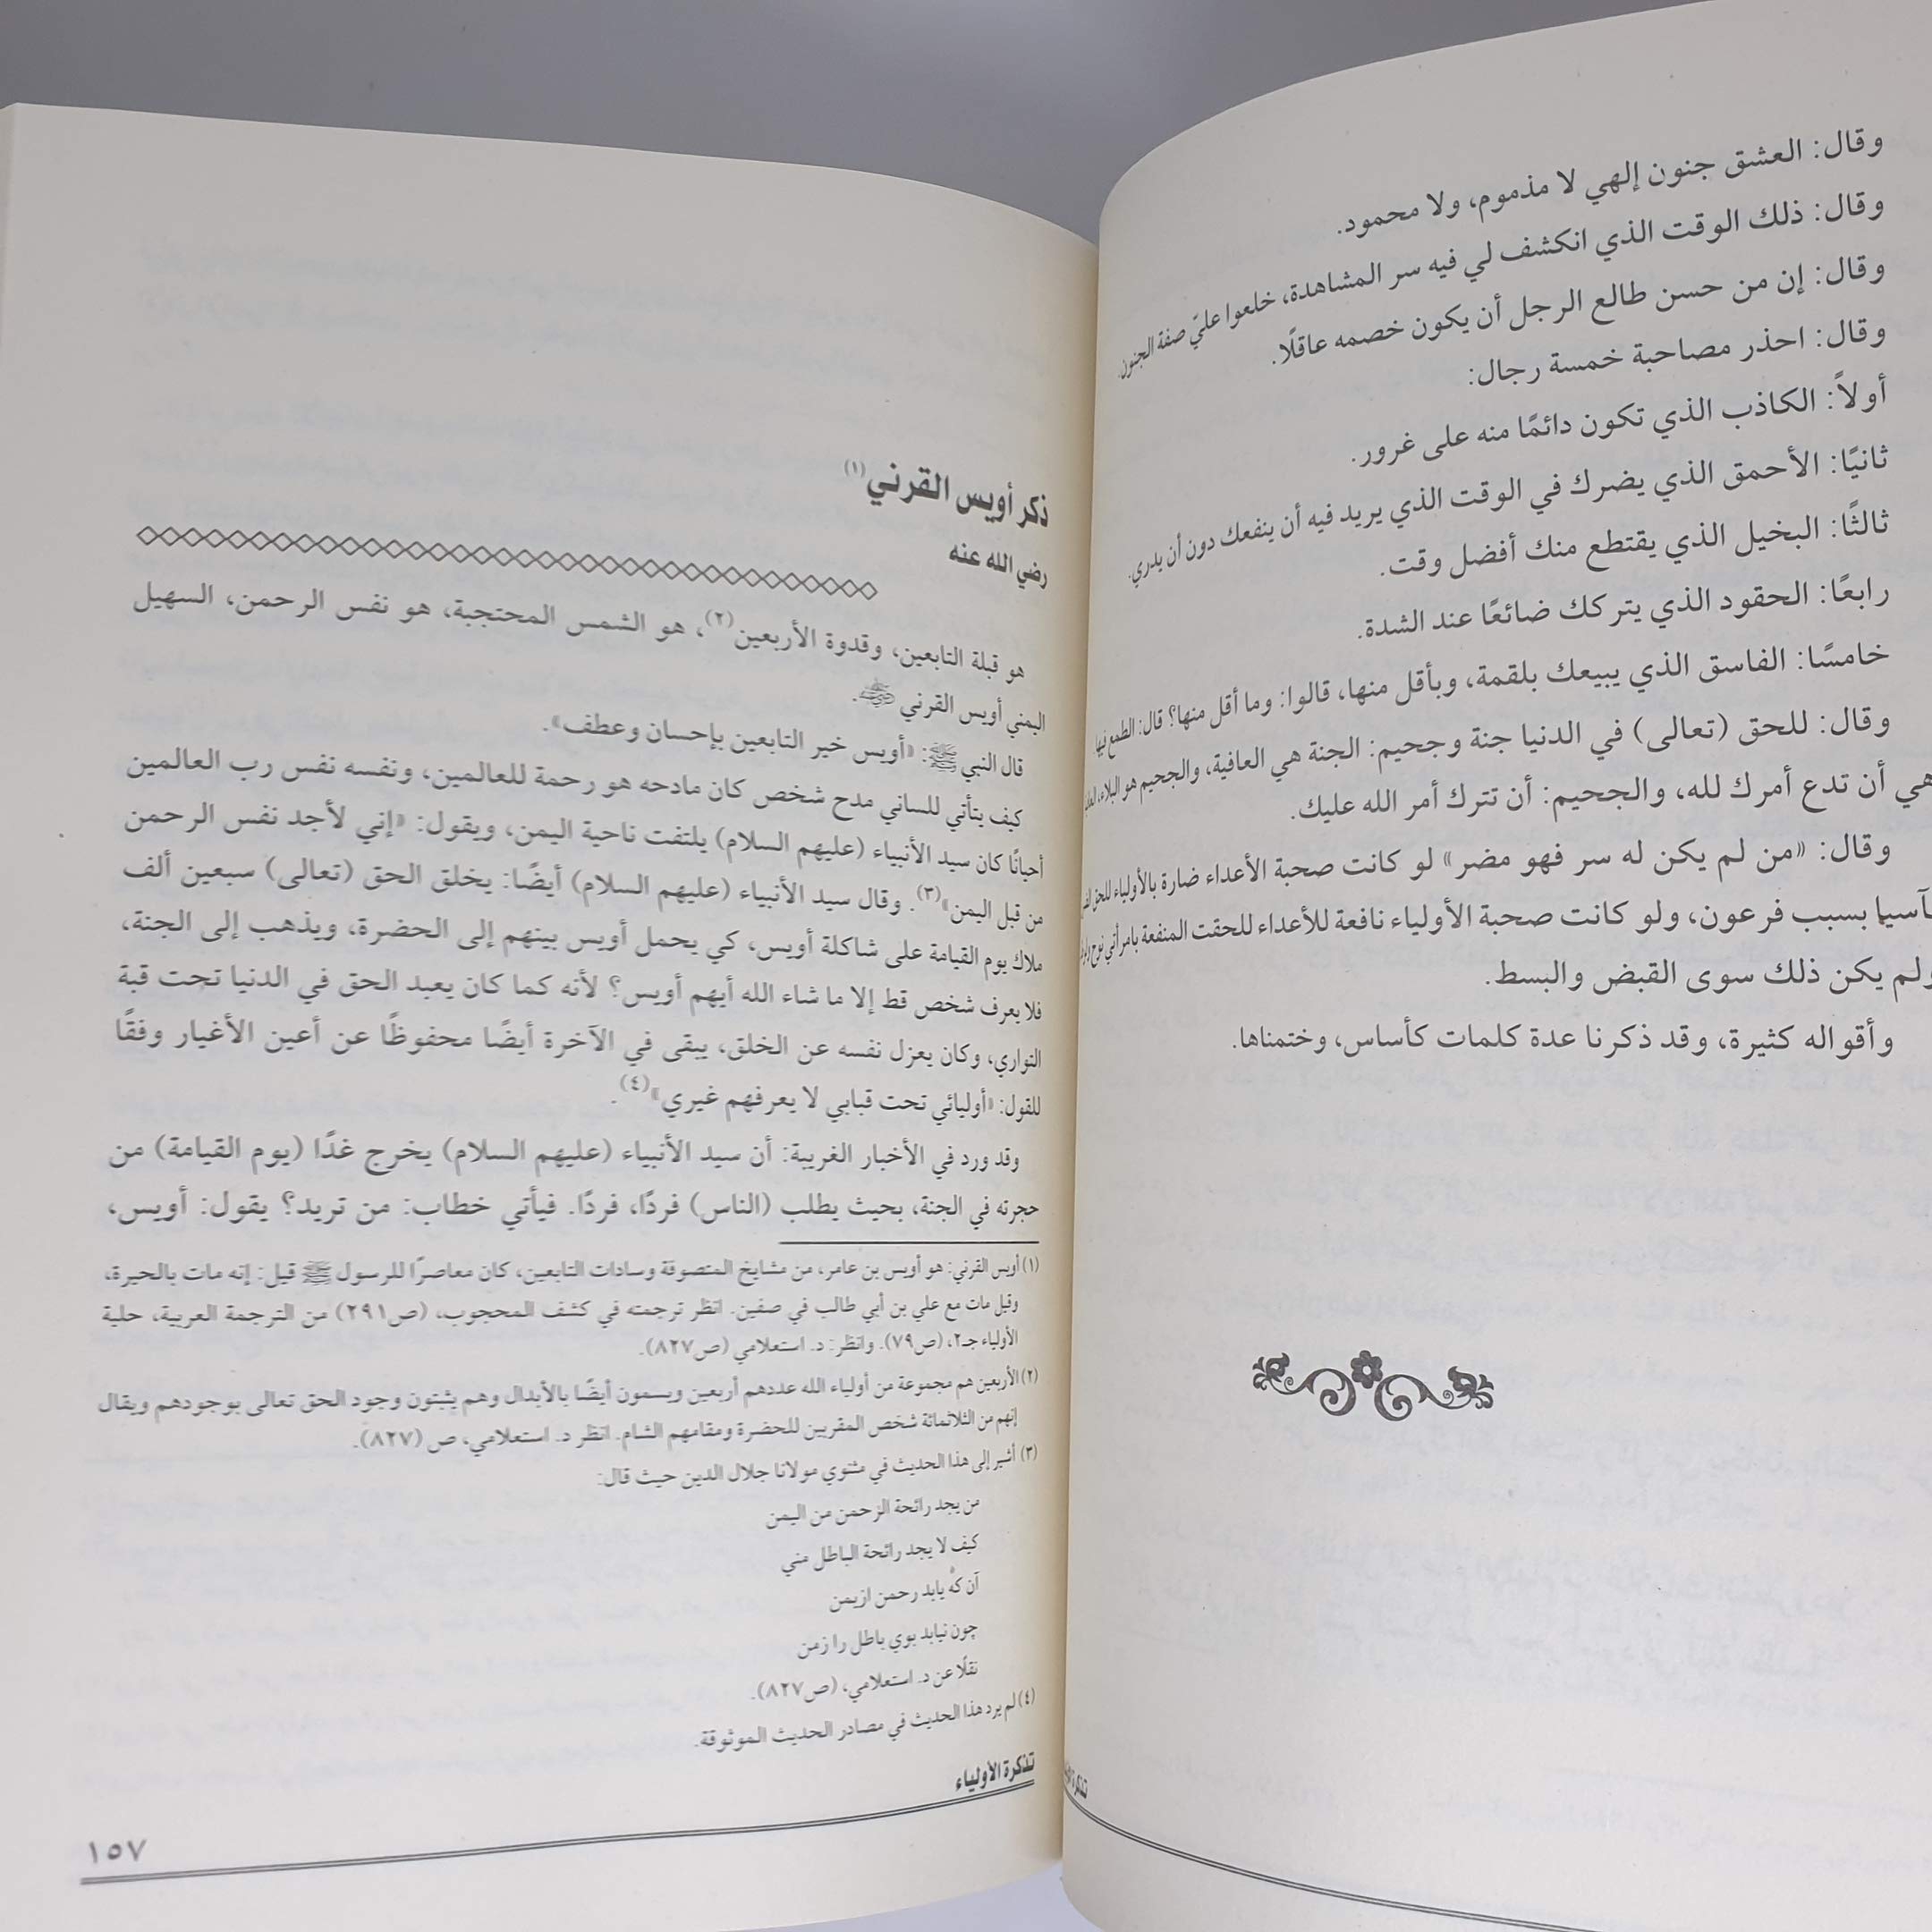 وقال: العشق جنون إلهي لا مذموم، ولا محمود.
وقال: ذلك الوقت الذي انكشف لي فيه سر المشاهدة، خلعوا عليّ صفة الجنون.
وقال: إن من حسن طالع الرجل أن يكون خصمه عاقلًا.
وقال: احذر مصاحبة خمسة رجال:
أولاً: الكاذب الذي تكون دائمًا منه على غرور.
ثانيًا: الأحمق الذي يضرك في الوقت الذي يريد فيه أن ينفعك دون أن يدري.
ثالثًا: البخيل الذي يقتطع منك أفضل وقت.
رابعًا: الحقود الذي يتركك ضائعًا عند الشدة.
خامسًا: الفاسق الذي يبيعك بلقمة، وبأقل منها، قالوا: وما أقل منها؟ قال: الطمع فيها
وقال: للحق (تعالى) في الدنيا جنة وجحيم: الجنة هي العافية، والجحيم هو البلاء،
هي أن تدع أمرك لله، والجحيم: أن تترك أمر الله عليك.
وقال: «من لم يكن له سر فهو مضر» لو كانت صحبة الأعداء ضارة بالأولياء للحق
بآسيا بسبب فرعون، ولو كانت صحبة الأولياء نافعة للأعداء للحقت المنفعة بامرأتي نوح
ولم يكن ذلك سوى القبض والبسط.
وأقواله كثيرة، وقد ذكرنا عدة كلمات كأساس، وختمناها.
ذكر أويس القرني(١)
رضي الله عنه
هو قبلة التابعين، وقدوة الأربعين(٢)، هو الشمس المحتجبة، هو نفس الرحمن، السهيل
اليمني أويس القرني ﷺ.
قال النبي ﷺ: «أويس خير التابعين بإحسان وعطف».
كيف يتأتي للساني مدح شخص كان مادحه هو رحمة للعالمين، ونفسه نفس رب العالمين
أحيانًا كان سيد الأنبياء (عليهم السلام) يلتفت ناحية اليمن، ويقول: «إني لأجد نفس الرحمن
من قبل اليمن»(٣). وقال سيد الأنبياء (عليهم السلام) أيضًا: يخلق الحق (تعالى) سبعين ألف
ملاك يوم القيامة على شاكلة أويس، كي يحمل أويس بينهم إلى الحضرة، ويذهب إلى الجنة،
فلا يعرف شخص قط إلا ما شاء الله أيهم أويس؟ لأنه كما كان يعبد الحق في الدنيا تحت قبة
التواري، وكان يعزل نفسه عن الخلق، يبقى في الآخرة أيضًا محفوظًا عن أعين الأغيار وفقًا
للقول: «أوليائي تحت قبابي لا يعرفهم غيري»(٤).
وقد ورد في الأخبار الغريبة: أن سيد الأنبياء (عليهم السلام) يخرج غدًا (يوم القيامة) من
حجرته في الجنة، بحيث يطلب (الناس) فردًا، فردًا. فيأتي خطاب: من تريد؟ يقول: أويس،
(١) أويس القرني: هو أويس بن عامر، من مشايخ المتصوفة وسادات التابعين، كان معاصرًا للرسول ﷺ قيل: إنه مات بالحيرة،
وقيل مات مع علي بن أبي طالب في صفين. انظر ترجمته في كشف المحجوب، (ص٢٩١) من الترجمة العربية، حلية
الأولياء جـ٢، (ص٧٩). وانظر: د. استعلامي (ص٨٢٧).
(٢) الأربعين هم مجموعة من أولياء الله عددهم أربعين ويسمون أيضًا بالأبدال وهم يثبتون وجود الحق تعالى بوجودهم ويقال
إنهم من الثلاثمائة شخص المقربين للحضرة ومقامهم الشام. انظر د. استعلامي، ص (٨٢٧).
(٣) أشير إلى هذا الحديث في مثنوي مولانا جلال الدين حيث قال:
من يجد رائحة الرحمن من اليمن
كيف لا يجد رائحة الباطل مني
آن كه يابد رحمن ازيمن
چون نيابد بوي باطل را زمن
نقلًا عن د. استعلامي، (ص٨٢٧).
(٤) لم يرد هذا الحديث في مصادر الحديث الموثوقة.
تذكرة الأولياء
١٥٧